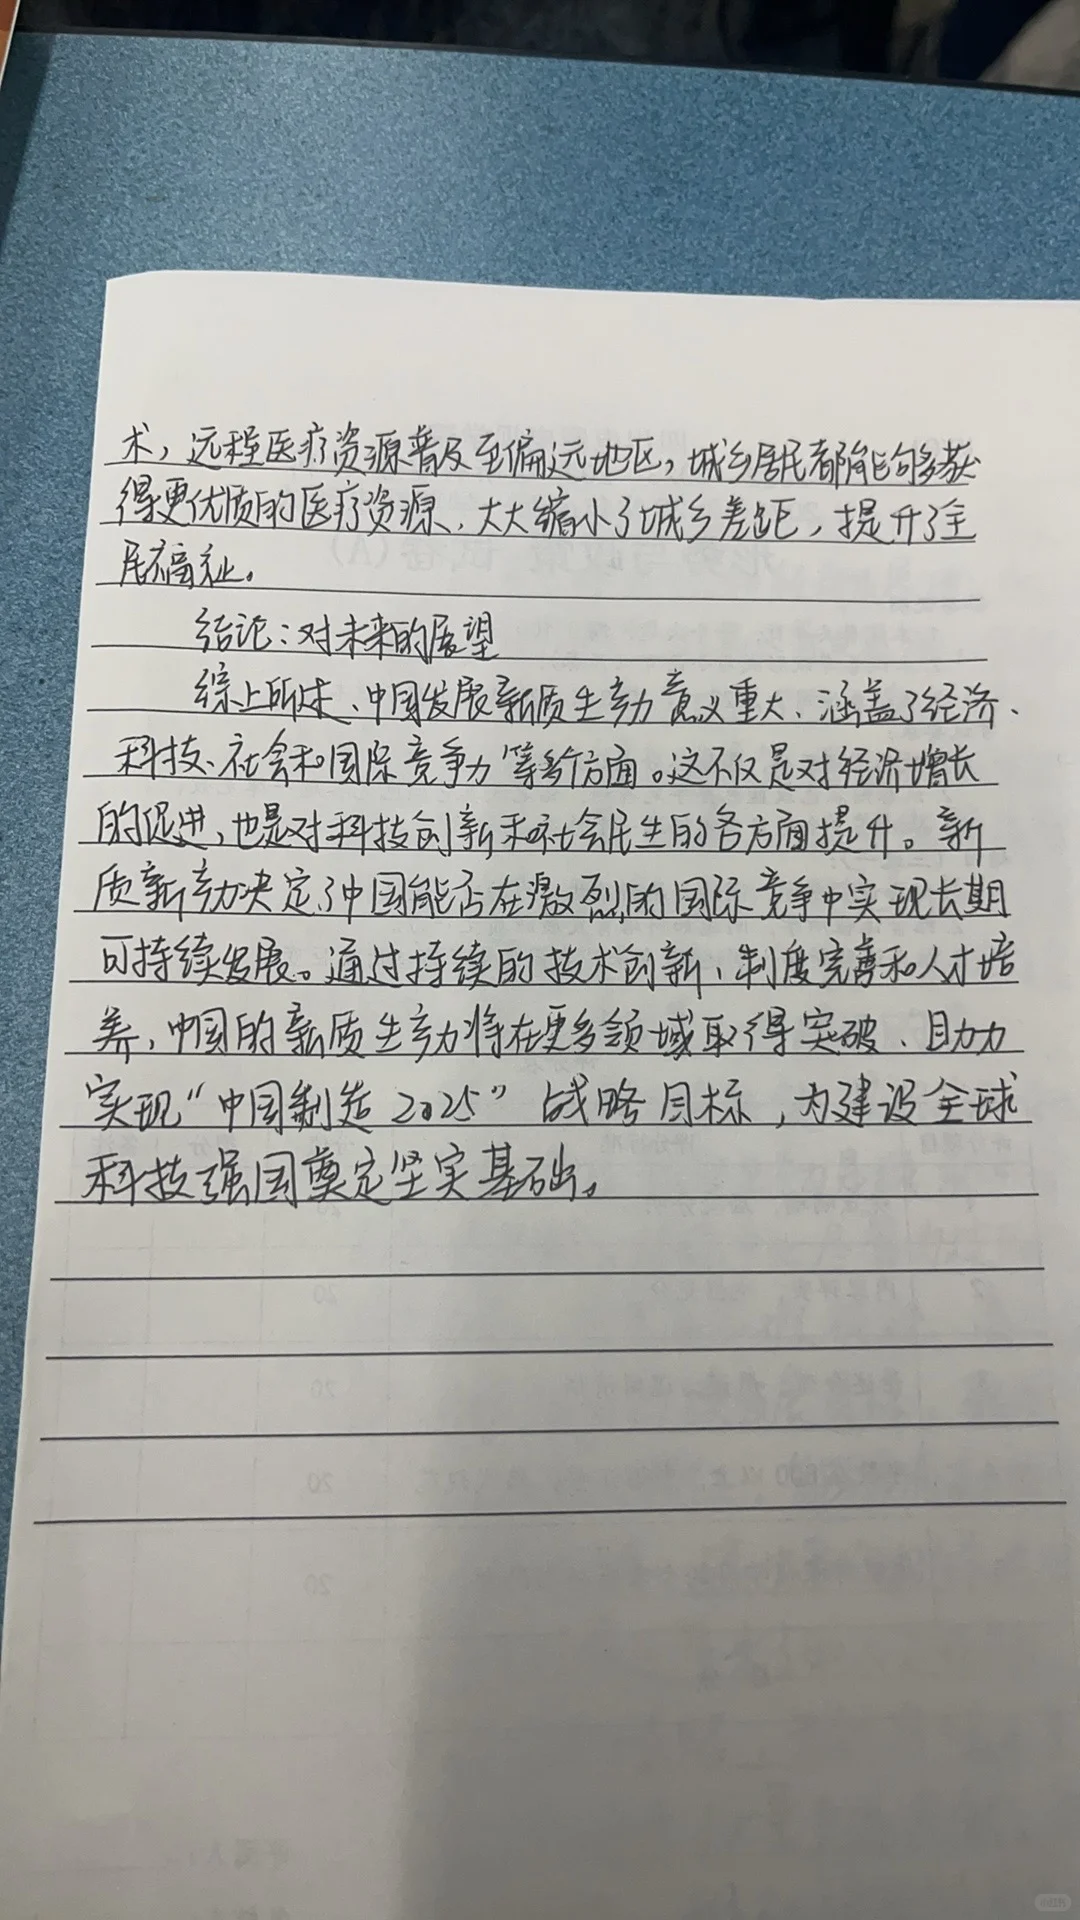 术，远程医疗资源普及至偏远地区，城乡居民都能够获
得更优质的医疗资源、大大缩小了城乡差距，提升了全
民福祉。
结论：对未来的展望
综上所述、中国发展新质生产力意义重大、涵盖了经济、
科技、社会和国际竞争力等多个方面。这不仅是对经济增长
的促进，也是对科技创新和社会民生的各方面提升。新
质新产力决定了中国能否在激烈的国际竞争中实现长期
可持续发展。通过持续的技术创新、制度完善和人才培
养，中国的新质生产力将在更多领域取得突破、助力
实现“中国制造2025”战略目标，为建设全球
科技强国奠定坚实基础。